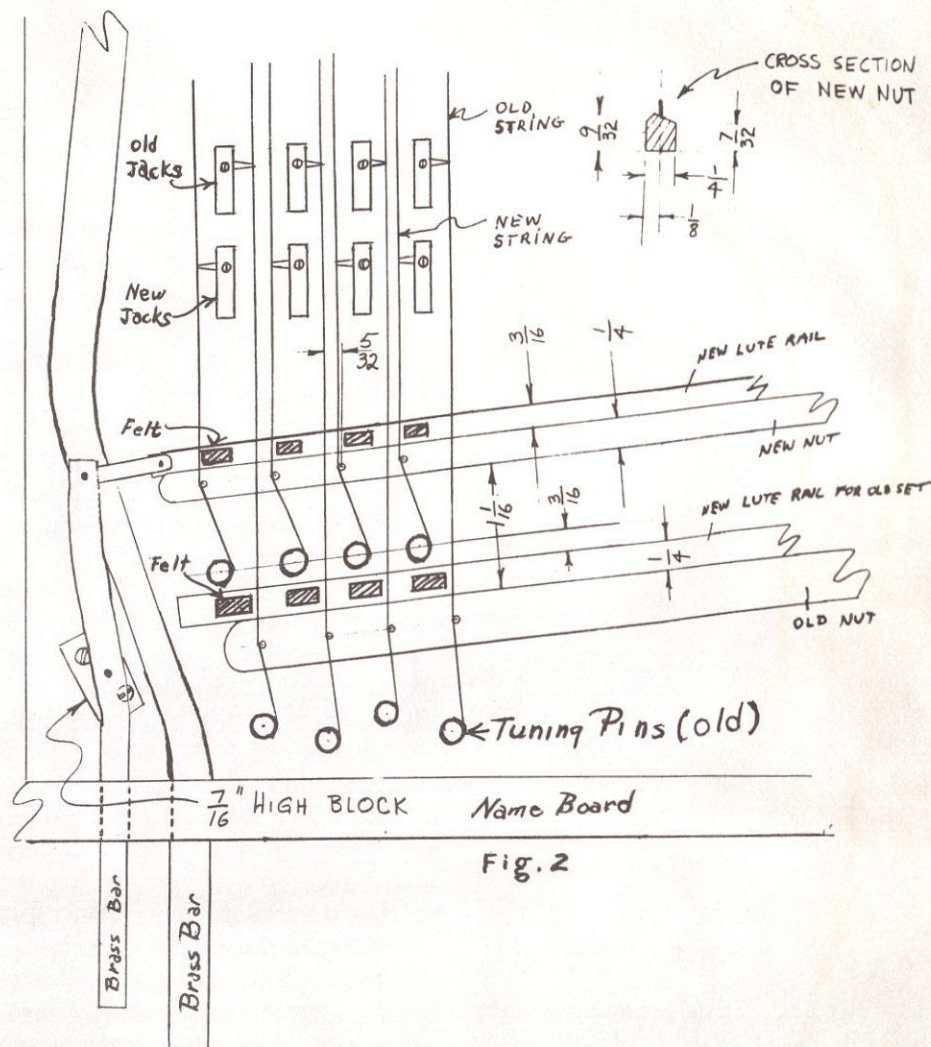 CROSS SECTION
OF NEW NUT
9/32
7/32
1/4
1/8
OLD
STRING
Old
Jacks
NEW
STRING
New
Jacks
5/32
3/16
1/4
NEW LUTE RAIL
Felt
NEW NUT
1 1/16
3/16
NEW LUTE RAIL FOR OLD SET
1/4
Felt
OLD NUT
Tuning Pins (old)
7/16" HIGH BLOCK
Name Board
Fig. 2
Brass Bar
Brass Bar